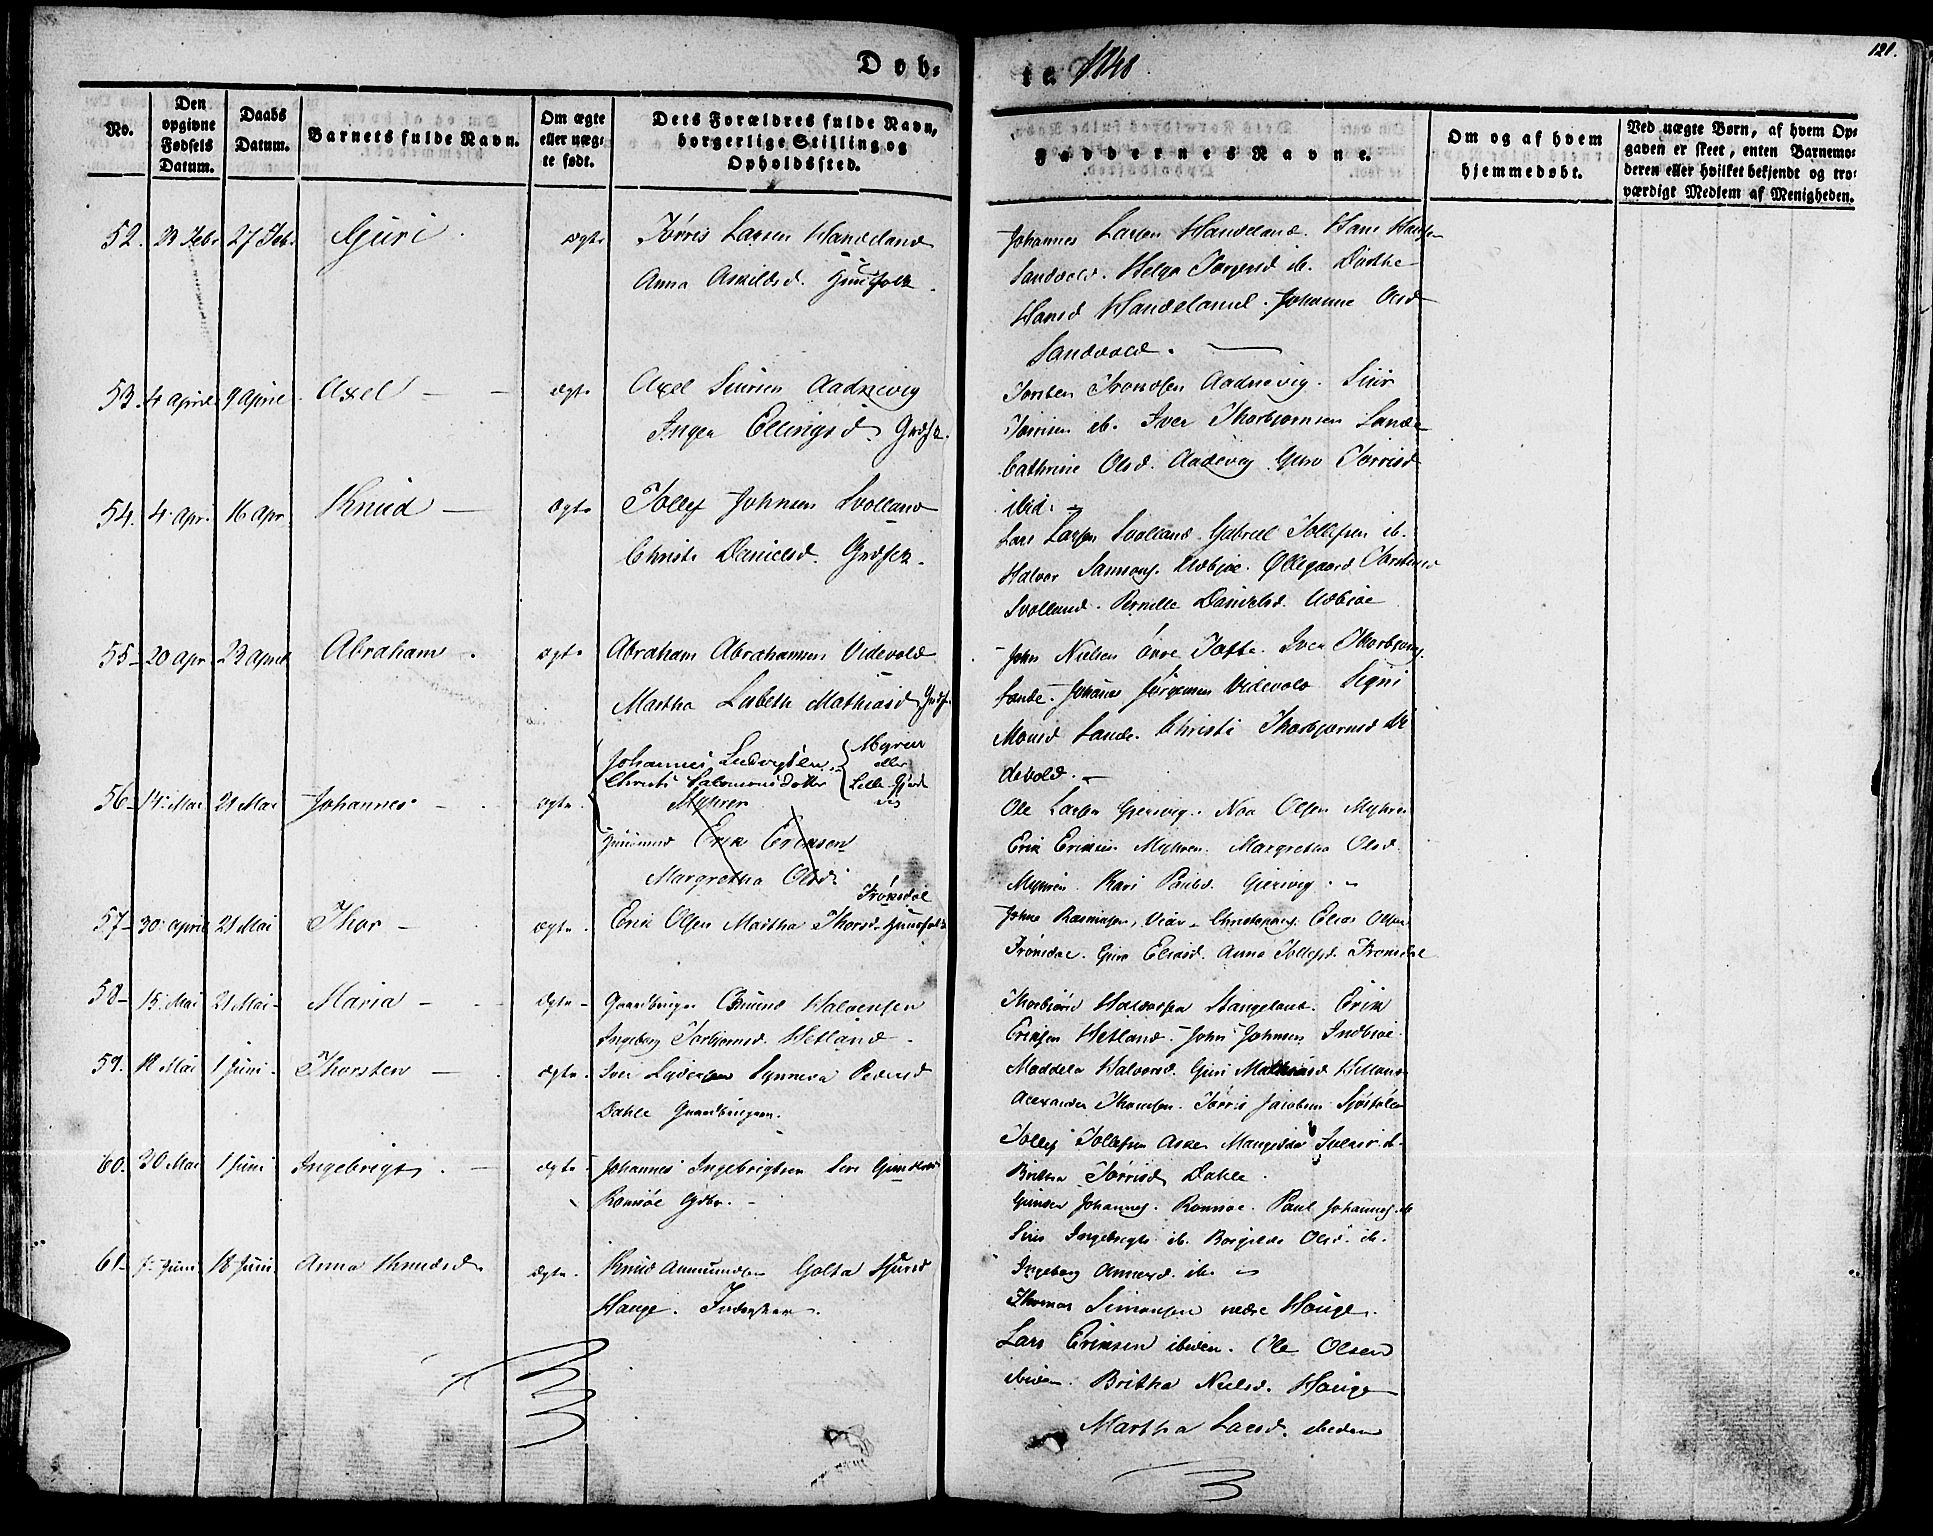 Døb-
te 1848.
121.
No.
Den opgivne Fødsels Datum.
Daabs Datum.
Barnets fulde Navn.
Om ægte eller uægte født.
Dets Forældres fulde Navn, borgerlige Stilling og Opholdssted.
Faddernes Navne.
Om og af hvem hjemmedøbt.
Ved uægte Børn, af hvem Opgaven er skeet, enten Barnemoderen eller hvilket bekjendt og troværdigt Medlem af Menigheden.
52. 23 Febr 27 Feb. Guri. ægte Tørris Larsen Handeland
Anna Asmildsd. Huusfolk.
Johannes Larsen Handeland. Hans Hansen
Sandvold. Helga Torgersd ib. Dorthe
Hansd Handeland. Johanne Olsd
Sandvold.
53. 4 April 9 April. Axel ægte Axel Siursen Aadnevig
Inger Ellingsd. Grdfk.
Torsten Aadnevig. Siur
Tørrisen ib. Iver Thorbjørnsen Sande
Cathrine Olsd. Aadnevig Guro Tørrisd
ibid.
54. 4 Apr. 16 Apr Knud ægte Tollef Johnsen Svolland
Christi Danielsd. Grdfk.
Lars Larsen Svolland. Gabriel Tollefsen ib.
Halvor Samsons. Udbjoe. Øllegaard Torstensd
Svolland. Pernille Danielsd. Udbjoe
55 20 Apr 23 April Abraham. ægte Abraham Abrahamsen Videvold
Martha Lisbeth Mathiasd Grdf.
John Nielsen Øvre Tofte. Iver Thorbjørns.
Sande. Johannes Jørgensen Videvold Signi
Monsd Sande. Christi Thorbjørnsd Vi
devold.
56 14 Mai 21 Mai Johannes ægte Johannes Ludvigsen
Christi Salomonsdatter
Myren
eller
Lille
Myhren
Huusmand Erik Eriksen
Margretha Olsd:
Ole Larsen Gjerevig. Noa Olsen Myhren
Erik Eriksen Myhren. Margretha Olsd.
Myhren. Kari Paulsd. Gjerevig.
57 30 April 21 Mai Thor ægte. Erik Olsen Martha Thorsd. Huusfolk
Trønsdal
Johns Rasmusen, Elias Olsen
Trønsdal. Guro Eliasd. Anna Tollefsd. Tronsdal
58 15 Mai 21 Mai Maria ægte Gaardbruger Halvorsen
Ingeborg Torbjørnsd. Hetland.
Thorbjørn Stangeland. Erik
Eriksen Hetland. John Johnsen Indbjoe.
Maddela Halvorsd. Guri Mathiasd Hetland
59. 12 Mai 1 Juni Thorsten ægte. Iver Synneva Pedersd
Dahle Gaardbrugere.
Alexander Thomsen. Tørris Jacobsen
Tollef Tollefsen ib.
Britha Tørrisd. Dahle.
60. 30 Mai 1 Juni Ingebrigt ægte Johannes Ingebrigtsen Siri Gundersd
Romsøe Gdbr.
Gunder Johannes. Romsøe. Paul Johannes. ib
Siri Ingebrigts ib. Borgilda Olsd. ib.
Ingeborg ib.
61 7 Juni 18 Juni Anna Knudsd. ægte. Knud Amundsen Golta Sjursd
Hauge.
Thomas Simonsen nedre Hauge.
Lars Eriksen ibidem. Ole Olsen
ibidem. Britha Nielsd. Hauge
Martha Larsd. ibidem